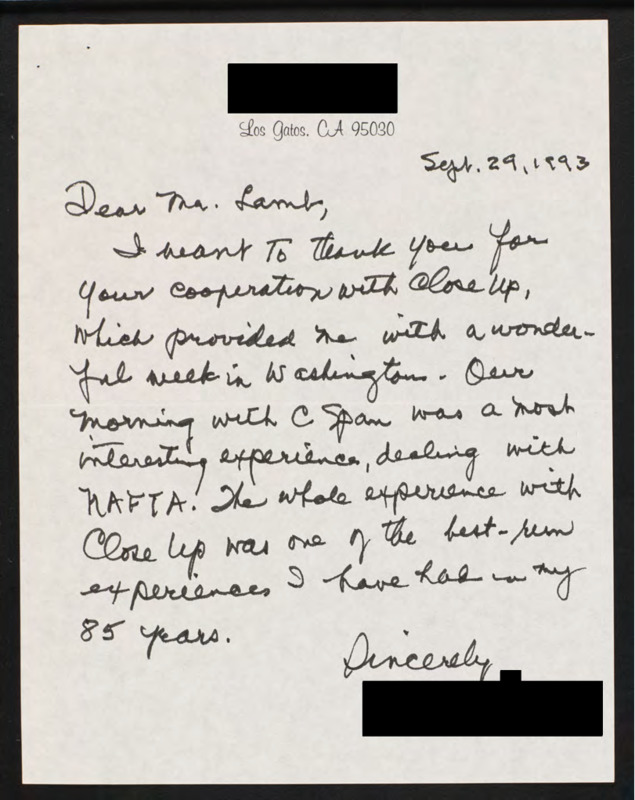 Los Gatos, CA 95030
Sept. 29, 1993
Dear Mr. Lamb,
I want to thank you for
your cooperation with Close Up,
which provided me with a wonder-
ful week in Washington. Our
morning with C Span was a most
interesting experience, dealing with
NAFTA! The whole experience with
Close Up was one of the best-run
experiences I have had in my
85 years.
Sincerely